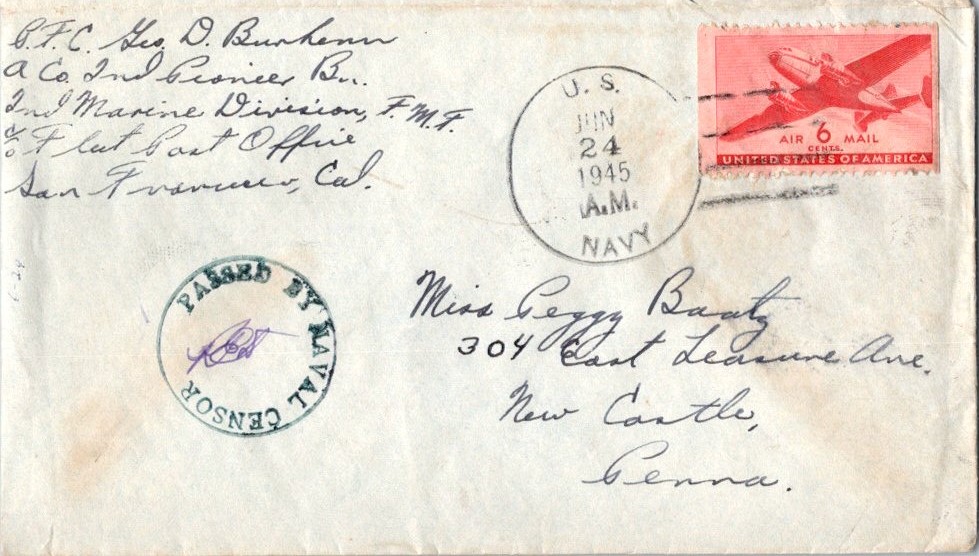 P.F.C. Geo. D. Burhenn
A Co. 2nd Pioneer Bn.
2nd Marine Division, F.M.F.
c/o Fleet Post Office
San Francisco, Cal.
U.S.
JUN
24
1945
A.M.
NAVY
AIR 6 MAIL
CENTS
UNITED STATES OF AMERICA
PASSED BY NAVAL CENSOR
Miss Peggy Baatz
304 East Leasure Ave.
New Castle,
Penna.